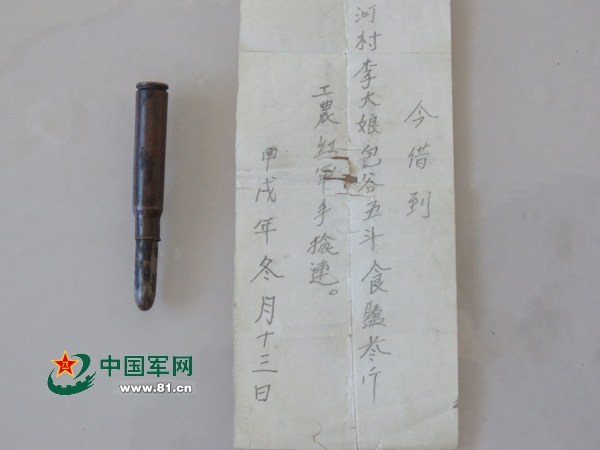 今借到
河村李大娘包谷五斗食盐叁斤
工農红軍手搶連。
甲戌年冬月十三日
中国军网
www.81.cn